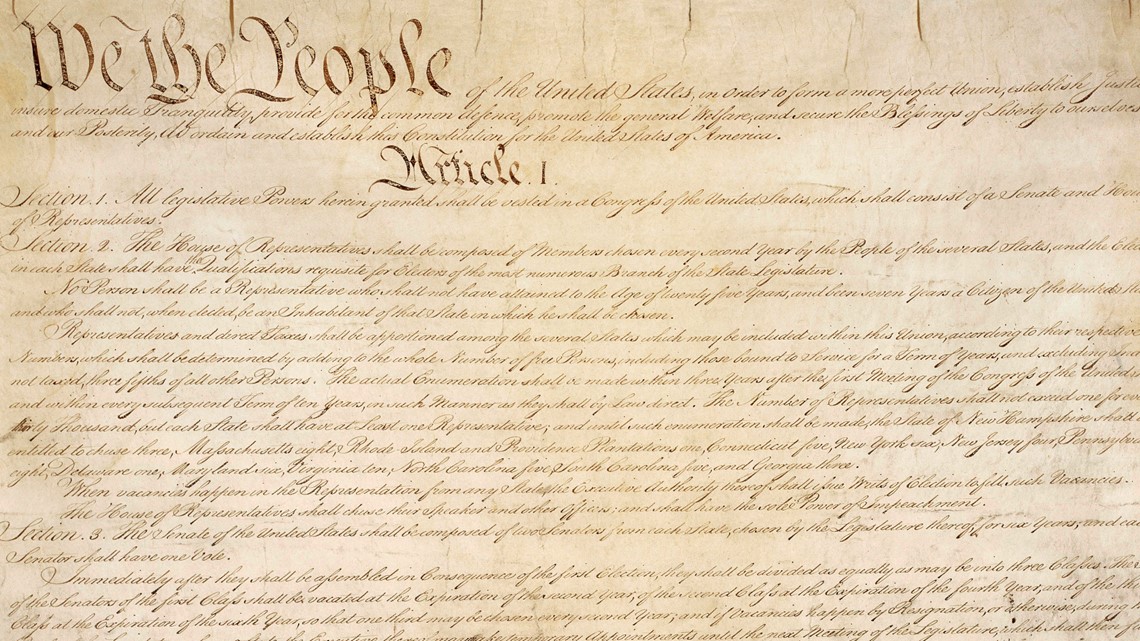 We the People of the United States, in order to form a more perfect Union, establish Just
insure domestic Tranquility, provide for the common defence, promote the general Welfare, and secure the Blessings of Liberty to ourselves
and our Posterity, do ordain and establish this Constitution for the United States of America.
Article. I.
Section. 1. All legislative Powers herein granted shall be vested in a Congress of the United States, which shall consist of a Senate and Hou
of Representatives.
Section. 2. The House of Representatives shall be composed of Members chosen every second Year by the People of the several States, and the Elec
in each State shall have the Qualifications requisite for Electors of the most numerous Branch of the State Legislature.
No Person shall be a Representative who shall not have attained to the Age of twenty five Years, and been seven Years a Citizen of the United St
and who shall not, when elected, be an Inhabitant of that State in which he shall be chosen.
Representatives and direct Taxes shall be apportioned among the several States which may be included within this Union, according to their respective
Numbers, which shall be determined by adding to the whole Number of free Persons, including those bound to Service for a Term of Years, and excluding
not taxed, three fifths of all other Persons. The actual Enumeration shall be made within three Years after the first Meeting of the Congress of the United
and within every subsequent Term of ten Years, in such Manner as they shall by Law direct. The Number of Representatives shall not exceed one for ev
thirty Thousand, but each State shall have at Least one Representative; and until such enumeration shall be made, the State of New Hampshire shall
entitled to chuse three, Massachusetts eight, Rhode Island and Providence Plantations one, Connecticut five, New York six, New Jersey four, Pennsylva
eight, Delaware one, Maryland six, Virginia ten, North Carolina five, South Carolina five, and Georgia three.
When vacancies happen in the Representation from any State, the Executive Authority thereof shall issue Writs of Election to fill such Vacancies.
The House of Representatives shall chuse their Speaker and other Officers; and shall have the sole Power of Impeachment.
Section. 3. The Senate of the United States shall be composed of two Senators from each State, chosen by the Legislature thereof, for six Years; and ea
Senator shall have one Vote.
Immediately after they shall be assembled in Consequence of the first Election, they shall be divided as equally as may be into three Classes. The
of the Senators of the first Class shall be vacated at the Expiration of the second Year, of the second Class at the Expiration of the fourth Year, and of the
Class at the Expiration of the sixth Year, so that one third may be chosen every second Year; and if Vacancies happen by Resignation, or otherwise, during
temporary Appointments until the next Meeting of the Legislature, which shall then